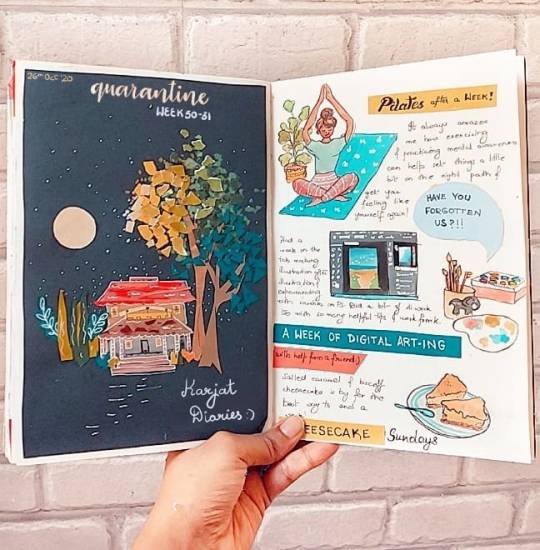 26th Oct '20
quarantine
WEEK 30-31
Karjat
Diaries :)
Pilates after a WEEK!
It always amazes
me how exercising
& practising mental awareness
can help set things a little
bit on the right path &
get you
feeling like
yourself again!
HAVE YOU
FORGOTTEN
US?!!
Had a
week on the
tab making
illustration after
illustration &
experimenting
with on PS. Had a bit of work
So with so many helpful tips & work
A WEEK OF DIGITAL ART-ING
(with help from a friend:)
Salted caramel & biscoff
cheesecake is by far the
best way to end a
EESECAKE Sundays